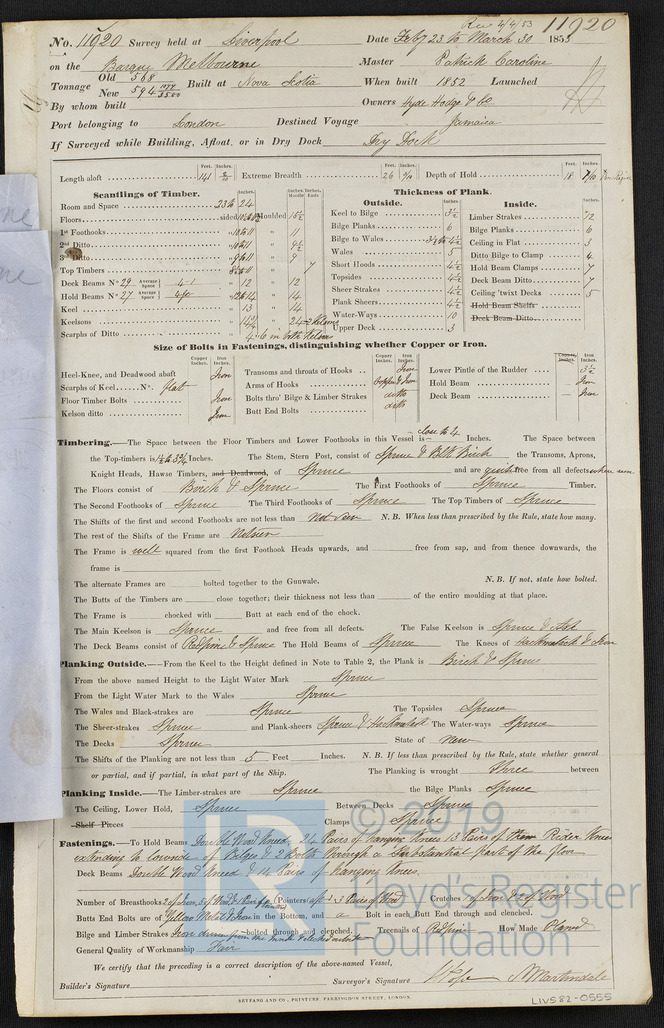 Rec 4/4/53 11920
No. 11920 Survey held at Liverpool Date Feby 23 to March 30 1853
on the Barque Melbourne Master Patrick Caroline
Tonnage Old 568 New 594 Built at Nova Scotia When built 1852 Launched
By whom built Owners Hyde Hodge & Co
Port belonging to London Destined Voyage Jamaica
If Surveyed while Building, Afloat, or in Dry Dock Dry Dock
Length aloft Feet. Inches. 141 Extreme Breadth Feet. Inches. 26 9/10 Depth of Hold Feet. Inches. 18 7/10
Scantlings of Timber.
Room and Space 23 to 24
Floors sided Moulded 15½
1st Foothooks 10 to 11 " 11
2nd Ditto 10 to 11 " 9½
3rd Ditto 9 to 11 " 9
Top Timbers 7
Deck Beams No 29 Average Space 4.1 " 12 " 12
Hold Beams No 27 Average Space " 14
Keel " 13 " 14
Keelsons " 24
Scarphs of Ditto 4.6 in both Kelsons
Thickness of Plank.
Outside.
Keel to Bilge 3½
Bilge Planks 6
Bilge to Wales 3½ to 4½
Wales 5
Short Hoods 4½
Topsides 4½
Sheer Strakes 4½
Plank Sheers 4½
Water-Ways 10
Upper Deck 3
Inside.
Limber Strakes 12
Bilge Planks 6
Ceiling in Flat 3
Ditto Bilge to Clamp 4
Hold Beam Clamps 7
Deck Beam Ditto 7
Ceiling 'twixt Decks 5
Hold Beam Shelfs
Deck Beam Ditto
Size of Bolts in Fastenings, distinguishing whether Copper or Iron.
Copper Inches. Iron Inches. Copper Inches. Iron Inches. Copper Inches. Iron Inches.
Heel-Knee, and Deadwood abaft Iron Transoms and throats of Hooks Iron Lower Pintle of the Rudder 3½
Scarphs of Keel No. flat Arms of Hooks Copper & Iron Hold Beam Iron
Floor Timber Bolts Iron Bolts thro' Bilge & Limber Strakes ditto Deck Beam Iron
Kelson ditto Iron Butt End Bolts ditto
Timbering.—The Space between the Floor Timbers and Lower Foothooks in this Vessel is close to 4 Inches. The Space between
the Top-timbers is Inches. The Stem, Stern Post, consist of Spruce & Blk Birch the Transoms, Aprons,
Knight Heads, Hawse Timbers, and Deadwood, of Spruce and are quite free from all defects where seen
The Floors consist of Birch & Spruce The First Foothooks of Spruce Timber.
The Second Foothooks of Spruce The Third Foothooks of Spruce The Top Timbers of Spruce
The Shifts of the first and second Foothooks are not less than Not seen N.B. When less than prescribed by the Rule, state how many.
The rest of the Shifts of the Frame are Not seen
The Frame is well squared from the first Foothook Heads upwards, and free from sap, and from thence downwards, the
frame is
The alternate Frames are bolted together to the Gunwale. N.B. If not, state how bolted.
The Butts of the Timbers are close together; their thickness not less than of the entire moulding at that place.
The Frame is chocked with Butt at each end of the chock.
The Main Keelson is Spruce and free from all defects. The False Keelson is Spruce & Ash
The Deck Beams consist of Red pine & Spruce The Hold Beams of Spruce The Knees of Hackmatack & Iron
Planking Outside.—From the Keel to the Height defined in Note to Table 2, the Plank is Birch & Spruce
From the above named Height to the Light Water Mark Spruce
From the Light Water Mark to the Wales Spruce
The Wales and Black-strakes are Spruce The Topsides Spruce
The Sheer-strakes Spruce and Plank-sheers Spruce & Hackmatack The Water-ways Spruce
The Decks Spruce State of New
The Shifts of the Planking are not less than 5 Feet Inches. N.B. If less than prescribed by the Rule, state whether general
or partial, and if partial, in what part of the Ship. The Planking is wrought three between
Planking Inside.—The Limber-strakes are Spruce the Bilge Planks Spruce
The Ceiling, Lower Hold, Spruce Between Decks Spruce
Shelf Pieces Clamps Spruce
Fastenings.—To Hold Beams Double Wood Kneed, 24 Pairs of hanging Knees 13 Pairs of Iron Rider Knees
extending to lower side of Bilges & 2 Bolts through a Substantial part of the floor
Deck Beams Double Wood Kneed & 14 Pairs of Hanging Knees.
Number of Breasthooks Pointers Crutches
Butts End Bolts are of Yellow Metal & Iron in the Bottom, and a Bolt in each Butt End through and clenched.
Bilge and Limber Strakes Iron driven from the inside bolted through and clenched. Treenails of Red pine How Made Planed
General Quality of Workmanship Fair
We certify that the preceding is a correct description of the above-named Vessel,
Builder's Signature Surveyor's Signature J. Martindale
SEYFANG AND CO., PRINTERS, FARRINGDON STREET, LONDON.
LIV582-0555
© 2019
Lloyd's Register
Foundation